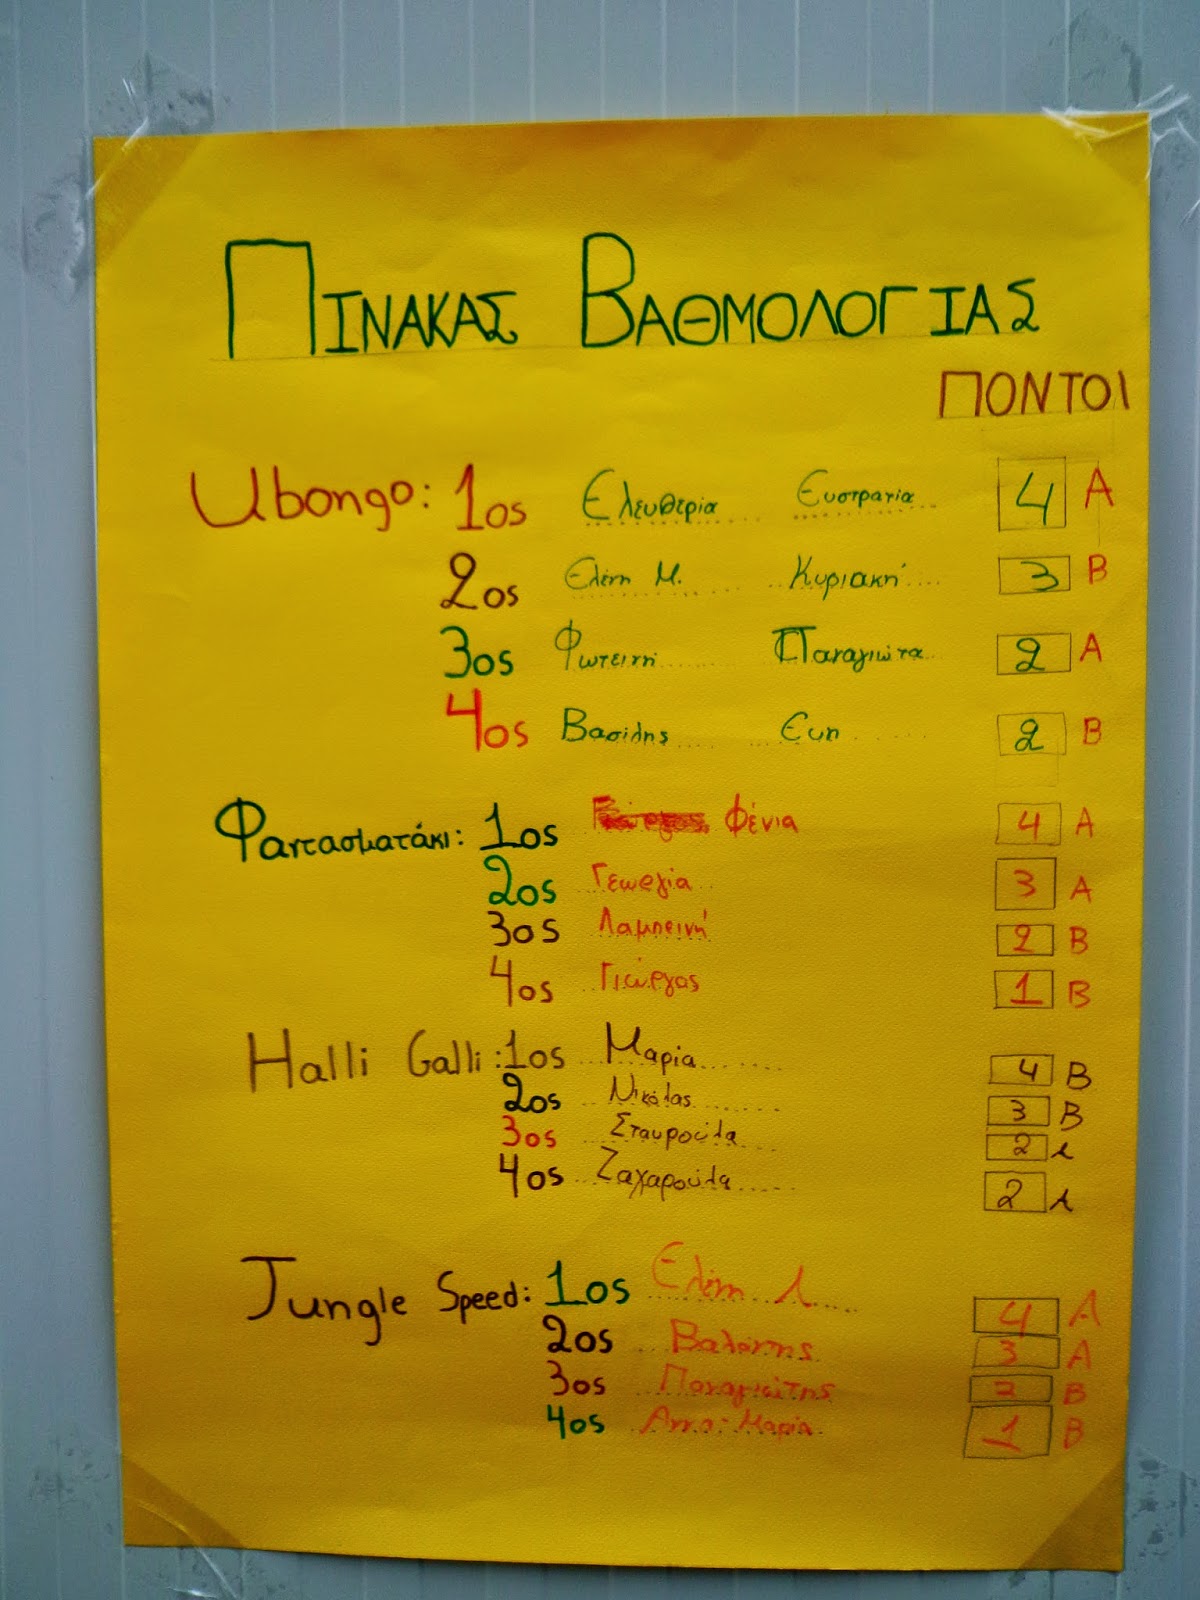 ΠΙΝΑΚΑΣ ΒΑΘΜΟΛΟΓΙΑΣ
ΠΟΝΤΟΙ
Ubongo: 1ος Ελευθερία Ευστρατία 4 Α
2ος Ελένη Μ. Κυριακή 3 Β
3ος Φωτεινή Παναγιώτα 2 Α
4ος Βασίλης Ευη 2 Β
Φαντασματάκι: 1ος Φένια 4 Α
2ος Γεωργία 3 Α
3ος Λαμπρινή 2 Β
4ος Γιώργος 1 Β
Halli Galli: 1ος Μαρία 4 Β
2ος Νικόλας 3 Β
3ος Σταυρούλα 2
4ος Ζαχαρούλα 2
Jungle Speed: 1ος Ελένη Λ 4 Α
2ος Βαλάντης 3 Α
3ος Παναγιώτης 2 Β
4ος Αννα-Μαρία 1 Β